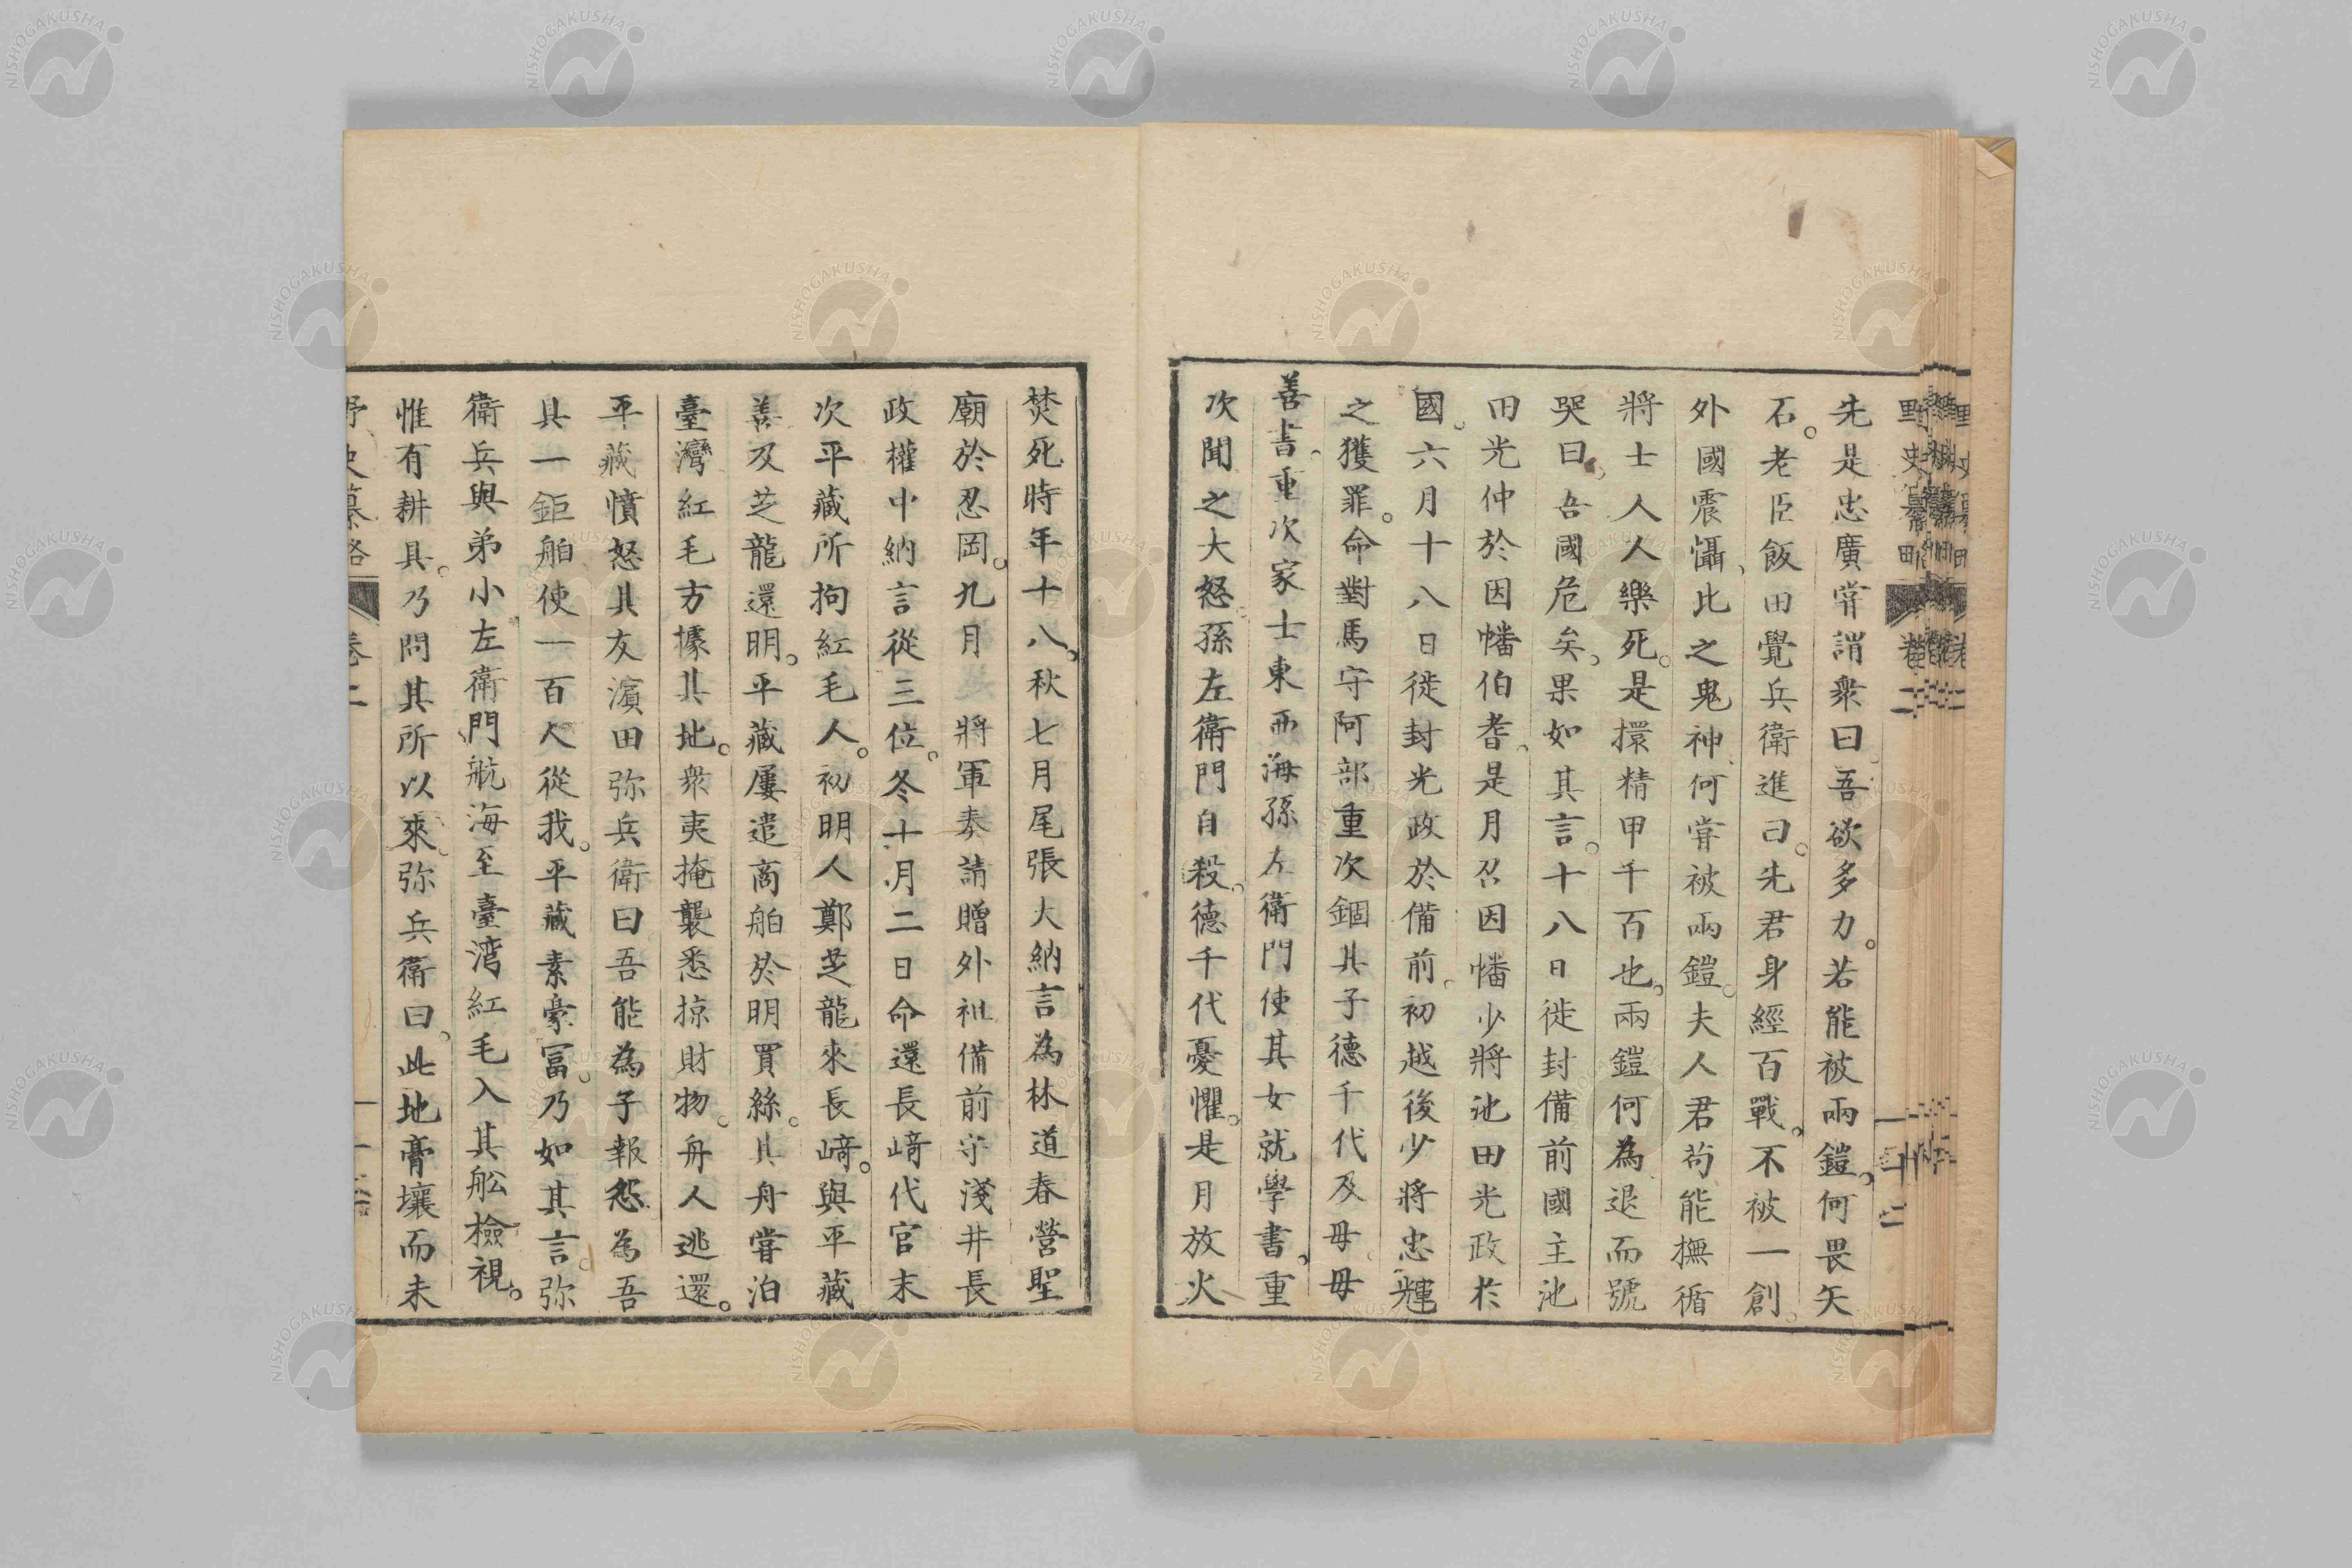 先是忠廣嘗謂衆曰吾欲多力。若能被兩鎧。何畏矢
石。老臣飯田覺兵衛進曰。先君身經百戰。不被一創。
外國震懾、比之鬼神、何嘗被兩鎧。夫人君苟能撫循
將士人人樂死。是擐精甲千百也。兩鎧何為退而號
哭曰。吾國危矣。果如其言。十八日徙封備前國主池
田光仲於因幡伯耆。是月召因幡少將池田光政於
國。六月十八日徙封光政於備前。初越後少將忠輝
之獲罪。命對馬守阿部重次錮其子德千代及母。母
善書。重次家士東西海孫左衛門使其女就學書。重
次聞之大怒。孫左衛門自殺。德千代憂懼。是月放火
焚死時年十八。秋七月尾張大納言為林道春營聖
廟於忍岡。九月 將軍奏請贈外祖備前守淺井長
政權中納言從三位。冬十月二日命還長﨑代官末
次平藏所拘紅毛人。初明人鄭芝龍來長﨑。與平藏
善及芝龍還明。平藏屢遣商舶於明買絲。其舟嘗泊
臺灣紅毛方據其地。衆夷掩襲悉掠財物。舟人逃還。
平藏憤怒其友濵田弥兵衛曰吾能為子報怨為吾
具一鉅舶使一百人從我。平藏素豪冨。乃如其言。弥
衛兵與弟小左衛門航海至臺湾紅毛入其舩檢視。
惟有耕具。乃問其所以來。弥兵衛曰。此地膏壤而未
野史纂畧 卷二
NISHOGAKUSHA